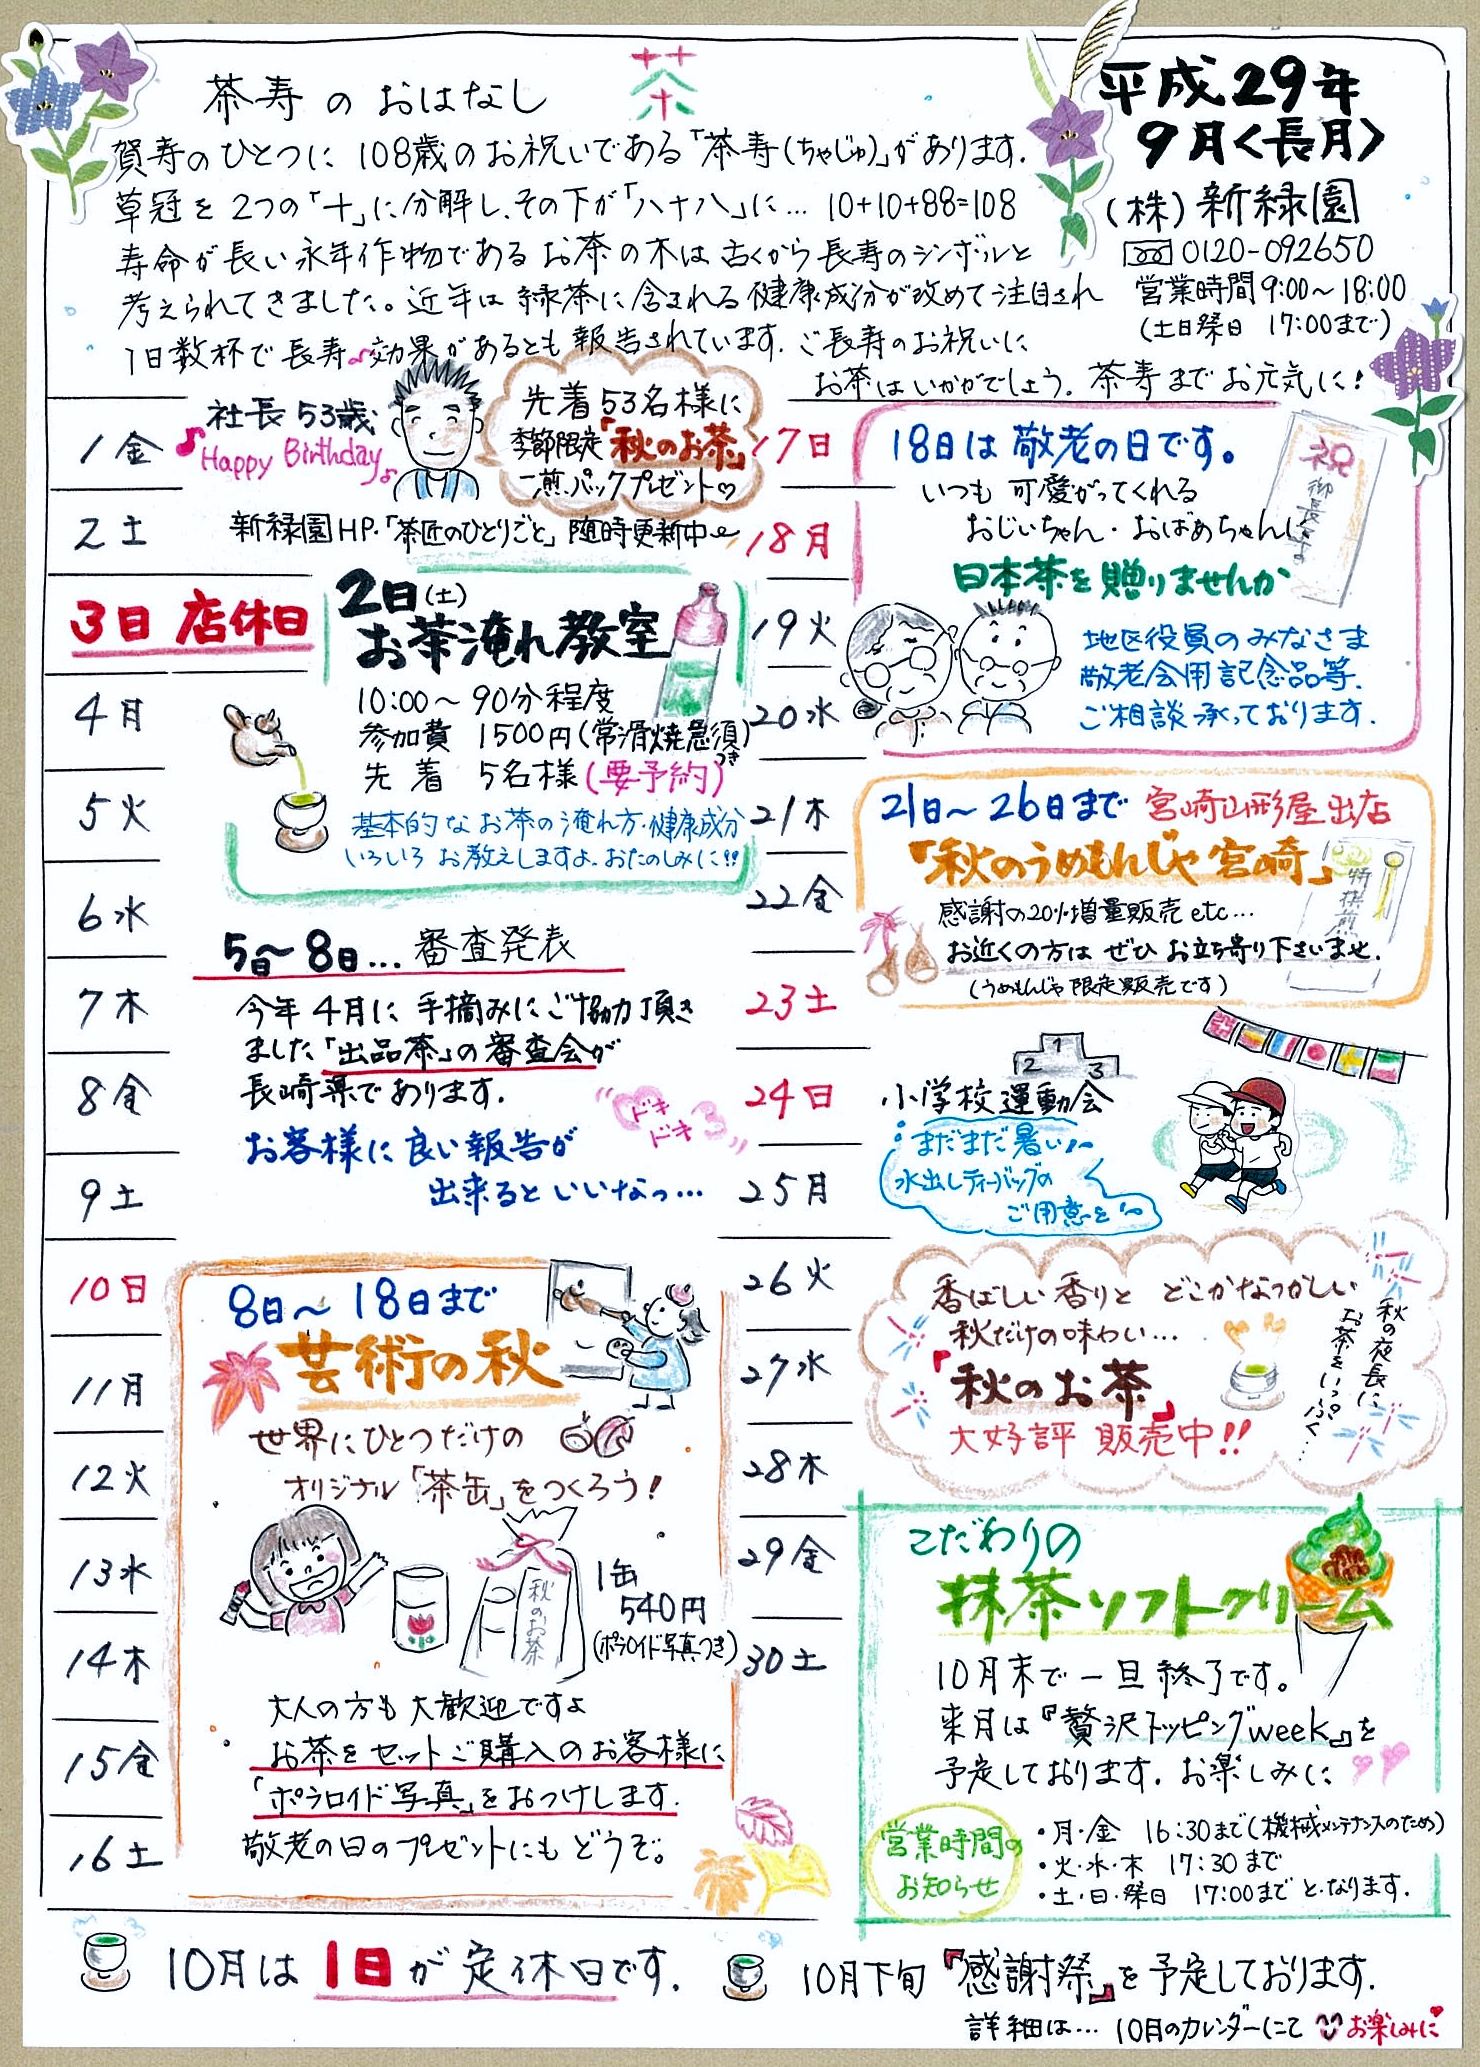 茶寿のおはなし
茶
賀寿のひとつに 108歳のお祝いである「茶寿(ちゃじゅ)」があります.
草冠を 2つの「十」に分解し、その下が「八十八」に… 10+10+88=108
寿命が長い永年作物であるお茶の木は古くから長寿のシンボルと
考えられてきました。近年は緑茶に含まれる健康成分が改めて注目され
1日数杯で長寿♪効果があるとも報告されています. ご長寿のお祝いに
お茶はいかがでしょう. 茶寿までお元気に!
平成29年
9月<長月>
(株)新緑園
0120-092650
営業時間 9:00〜18:00
(土日祭日 17:00まで)
1金
社長53歳
♪Happy Birthday♪
先着53名様に
季節限定「秋のお茶」
一煎パックプレゼント♡
2土
新緑園HP.「茶匠のひとりごと」随時更新中
3日 店休日
2日(土)
お茶淹れ教室
10:00〜 90分程度
参加費 1500円(常滑焼急須つき)
先着 5名様(要予約)
基本的なお茶の淹れ方・健康成分
いろいろ お教えしますよ. おたのしみに!!
4月
5火
6水
5日〜8日… 審査発表
今年4月に 手摘みにご協力頂き
ました「出品茶」の審査会が
長崎県であります.
ドキドキ
お客様に良い報告が
出来るといいなっ…
7木
8金
9土
10日
8日〜18日まで
芸術の秋
世界にひとつだけの
オリジナル「茶缶」をつくろう!
秋のお茶
1缶
540円
(ポラロイド写真つき)
大人の方も大歓迎ですよ
お茶をセットご購入のお客様に
「ポラロイド写真」をおつけします.
敬老の日のプレゼントにもどうぞ。
11月
12火
13水
14木
15金
16土
17日
18日は敬老の日です。
いつも可愛がってくれる
おじいちゃん・おばあちゃんに
日本茶を贈りませんか
祝
地区役員のみなさま
敬老会用記念品等.
ご相談承っております.
18月
19火
20水
21木
21日〜26日まで 宮崎山形屋出店
「秋のうめもんじゃ宮崎」
感謝の20%増量販売etc…
お近くの方は ぜひ お立ち寄り下さいませ.
(うめもんじゃ限定販売です)
特撰煎
22金
23土
24日
1
2 3
小学校運動会
まだまだ暑い〜
水出しティーバッグの
ご用意を〜
25月
26火
香ばしい香りと どこかなつかしい
秋だけの味わい…
『秋のお茶』
大好評 販売中!!
秋の夜長に
お茶をいっぷく…
27水
28木
29金
30土
こだわりの
抹茶ソフトクリーム
10月末で一旦終了です。
来月は『贅沢トッピングweek』を
予定しております. お楽しみに
営業時間の
お知らせ
・月・金 16:30まで(機械メンテナンスのため)
・火・水・木 17:30まで
・土・日・祭日 17:00まで となります.
10月は1日が定休日です.
10月下旬『感謝祭』を予定しております.
詳細は… 10月のカレンダーにて お楽しみに